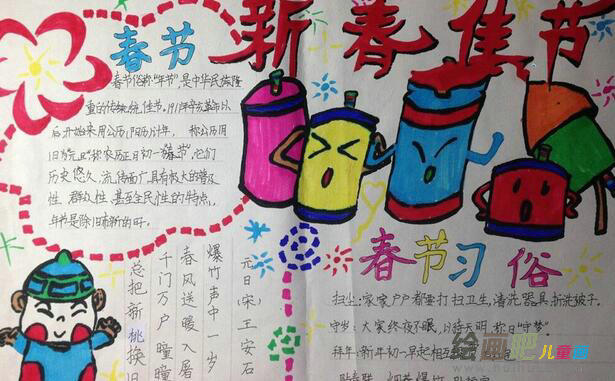 新春佳节
春节
春节俗称“年节”,是中华民族隆
重的传统佳节。1911年辛亥革命以
后开始采用公历(阳历)计年,
称公历
旧为
农历正月初一“春节”,它们
历史悠久、流传面广,具有极大的普及
性、群众性、甚至全民性的特点,
年节是除旧布新的日子。
元日(宋)王安石
爆竹声中一岁
春风送暖入屠
千门万户曈曈
总把新桃换旧
春节习俗
扫尘:家家户户都要打扫卫生,清洗器具,拆洗被子。
守岁:大家终夜不眠,以待天明,称曰“守岁”。
拜年:新年初一早起相互
贴春联
绘画吧 儿童画